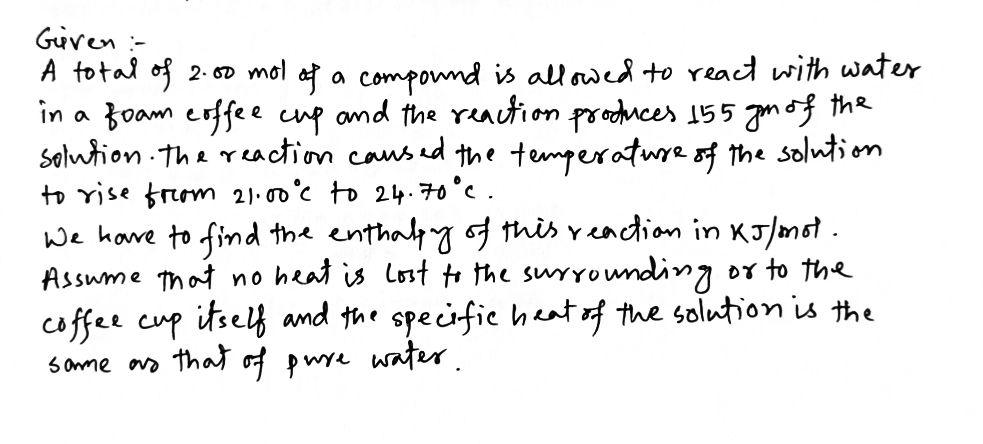 Given :-
A total of 2.00 mol of a compound is allowed to react with water
in a foam coffee cup and the reaction produces 155 gm of the
solution. The reaction caused the temperature of the solution
to rise from 21.00°c to 24.70°c.
We have to find the enthalpy of this reaction in KJ/mol.
Assume that no heat is lost to the surrounding or to the
coffee cup itself and the specific heat of the solution is the
same as that of pure water.